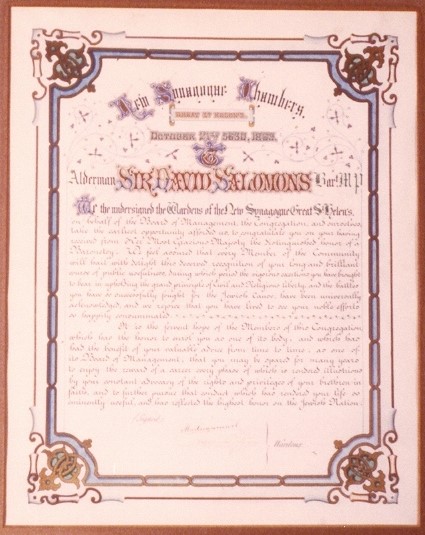 New Synagogue Chambers.
GREAT ST HELEN'S.
OCTOBER 5630, 1869.
To
Alderman SIR DAVID SALOMONS Bart MP
We the undersigned the Wardens of the New Synagogue Great St Helen's,
on behalf of the Board of Management, the Congregation, and ourselves,
take the earliest opportunity afforded us to congratulate you on your having
received from Her Most Gracious Majesty the distinguished honor of a
Baronetcy. We feel assured that every Member of the Community
will hail with delight this deserved recognition of your long and brilliant
career of public usefulness, during which period the vigorous exertions you have brought
to bear in upholding the grand principle of Civil and Religious liberty, and the battles
you have so successfully fought for the Jewish Cause, have been universally
acknowledged, and we rejoice that you have lived to see your noble efforts
so happily consummated.
It is the fervent hope of the Members of this Congregation,
which has the honor to enrol you as one of its body, and which has
had the benefit of your valuable advice from time to time, as one of
its Board of Management, that you may be spared for many years
to enjoy the reward of a career every phase of which is rendered illustrious
by your constant advocacy of the rights and privileges of your brethren in
faith, and to further pursue that conduct which has rendered your life so
eminently useful, and has reflected the highest honor on the Jewish Nation.
Signed
Wardens